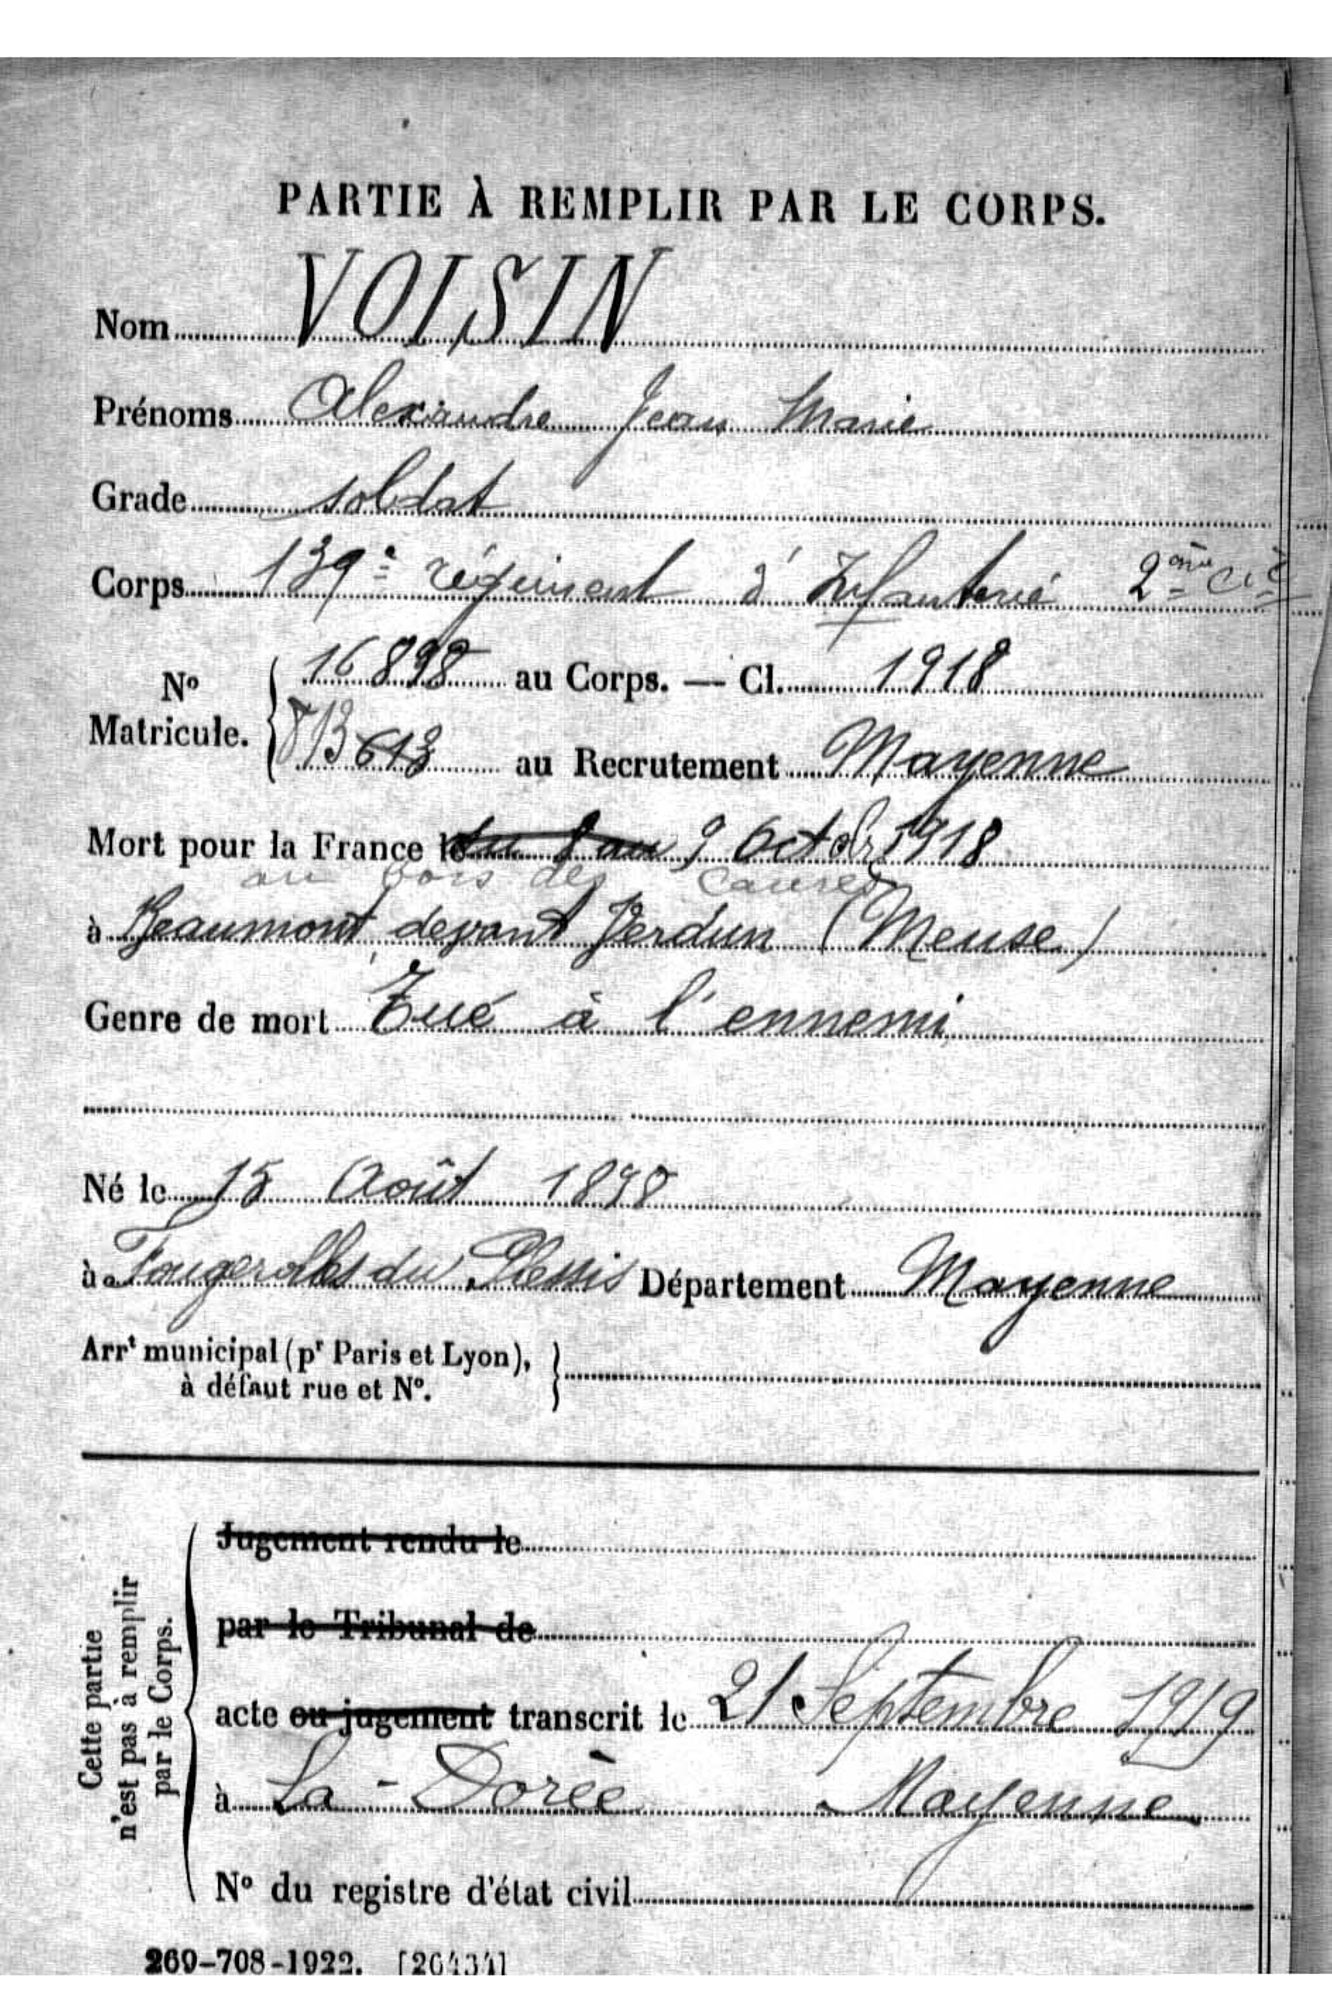 PARTIE À REMPLIR PAR LE CORPS.
Nom VOISIN
Prénoms Alexandre Jean Marie
Grade soldat
Corps 139e régiment d'Infanterie 2ème Cie
No Matricule. 16898 au Corps. — Cl. 1918
813 613 au Recrutement Mayenne
Mort pour la France le du 8 au 9 Octobr 1918
au bois des Caures
à Beaumont, devant Verdun (Meuse)
Genre de mort Tué à l'ennemi
Né le 15 Août 1898
à Fougerolles du Plessis Département Mayenne
Arrt municipal (pr Paris et Lyon),
à défaut rue et No.
Cette partie
n'est pas à remplir
par le Corps.
Jugement rendu le
par le Tribunal de
acte ou jugement transcrit le 21 Septembre 1919
à La-Dorée Mayenne
No du registre d'état civil
269-708-1922. [26434]